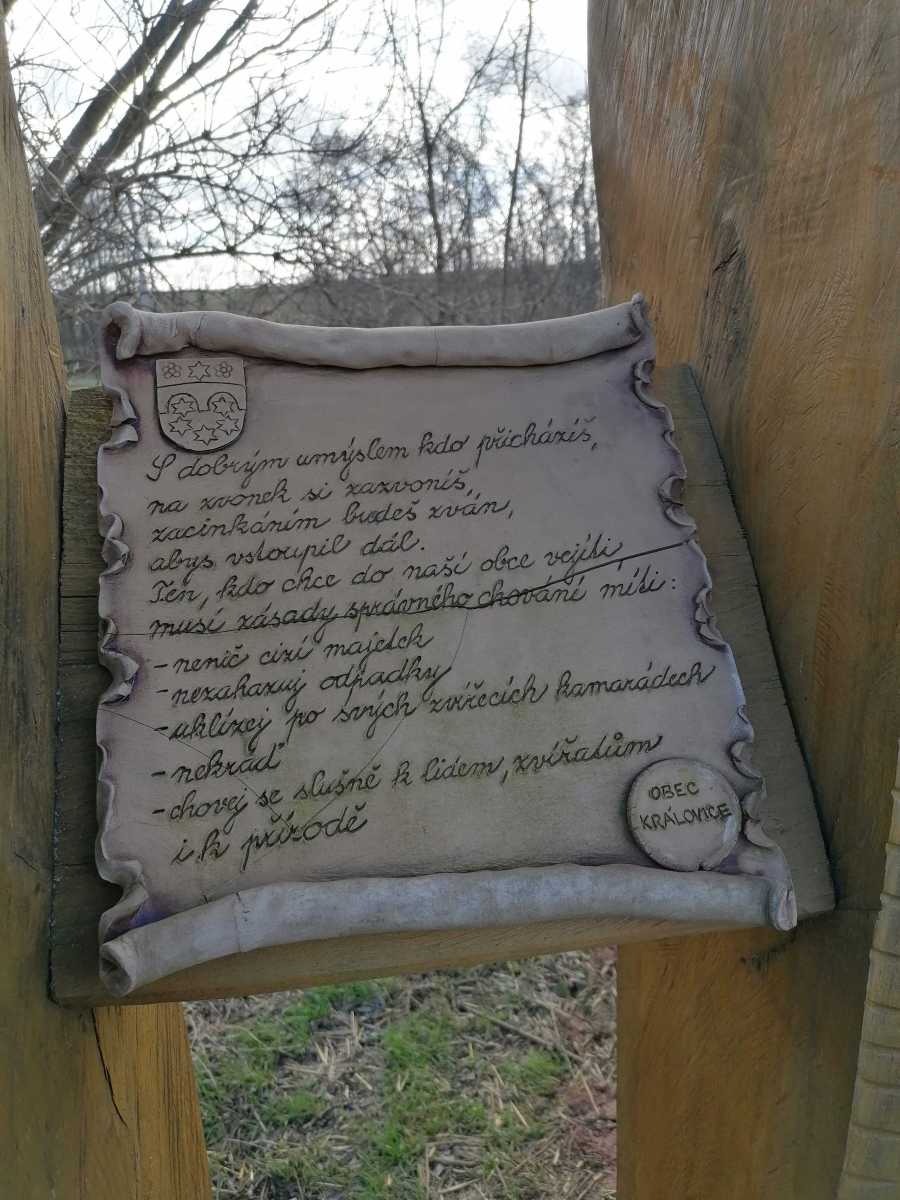 S dobrým umýslem kdo přicházíš,
na zvonek si zazvoníš,
zacinkáním budeš zván,
abys vstoupil dál.
Ten, kdo chce do naší obce vejíti
musí zásady správného chování míti:
-nenič cizí majetek
-nezahazuj odpadky
-uklízej po svých zvířecích kamarádech
-nekraď
-chovej se slušně k lidem, zvířatům
i k přírodě
OBEC
KRÁLOVICE